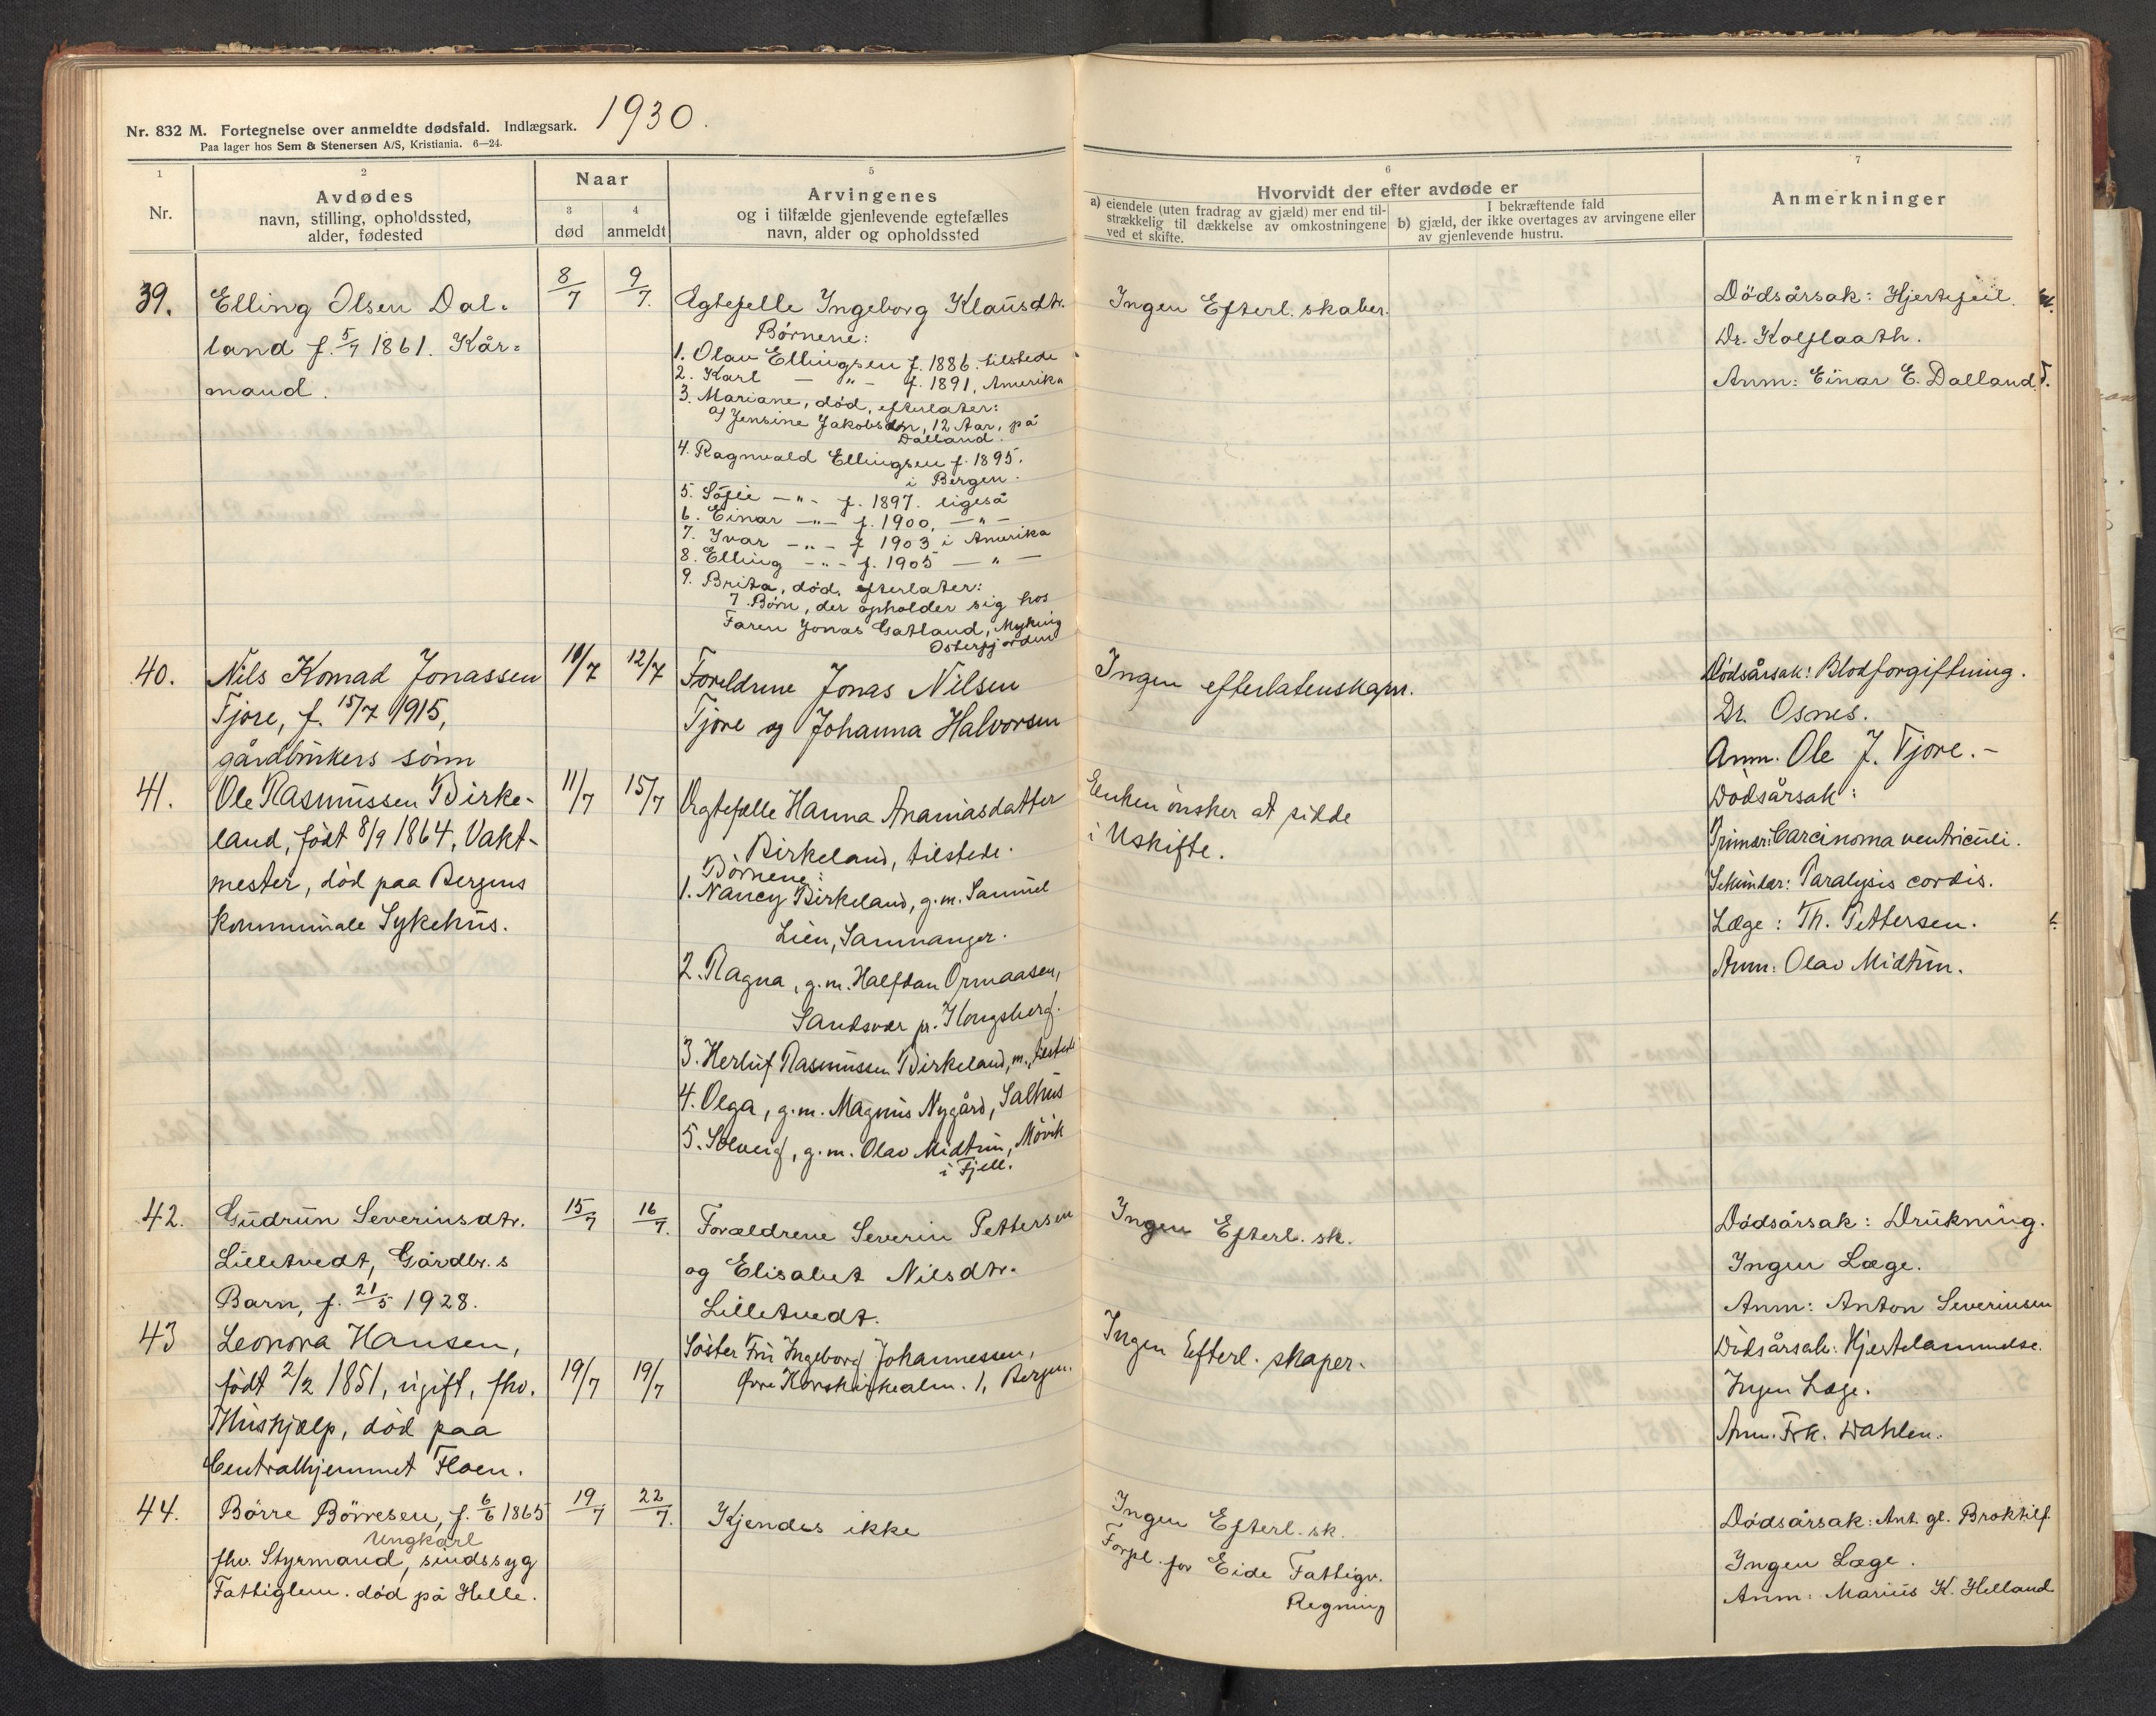 Nr. 832 M. Fortegnelse over anmeldte dødsfald. Indlægsark. 1930.
Paa lager hos Sem & Stenersen A/S, Kristiania. 6—24.
1
Nr.
2
Avdødes
navn, stilling, opholdssted,
alder, fødested
Naar
3
død
4
anmeldt
5
Arvingenes
og i tilfælde gjenlevende egtefælles
navn, alder og opholdssted
6
Hvorvidt der efter avdøde er
a) eiendele (uten fradrag av gjæld) mer end til-
strækkelig til dækkelse av omkostningene
ved et skifte.
I bekræftende fald
b) gjæld, der ikke overtages av arvingene eller
av gjenlevende hustru.
7
Anmerkninger
39.
Elling Olsen Dal-
land f. 5/7 1861. Kår-
mand.
8/7
9/7.
Ægtefelle Ingeborg Klausdtr.
Børnene:
1. Olav Ellingsen f. 1886. tilstede
2. Karl — " — f. 1891, Amerika
3. Mariane, død, efterlater:
a/ Jensine Jakobsdtr, 12 Aar, på
Dalland.
4. Ragnvald Ellingsen f. 1895.
i Bergen.
5. Sofie — " — f. 1897. ligeså
6. Einar — " — f. 1900, — " —
7. Ivar — " — f. 1903 i Amerika
8. Elling — " — f. 1905 — " —
9. Brita, død, efterlater:
7 Børn, der opholder sig hos
Faren Jonas Gatland, Myking
Osterfjorden
Ingen Efterl. skaber.
Dödsårsak: Hjertefeil.
Dr. Kolflaath.
Anm: Einar E. Dalland.
40.
Nils Konrad Jonassen
Tjore, f. 15/7 1915,
gårdbrukers sönn
10/7
12/7
Foreldrene Jonas Nilsen
Tjore og Johanna Halvorsen
Ingen efterlatenskaper.
Dödsårsak: Blodforgiftning.
Dr. Osnes.
Anm. Ole J. Tjore. -
41.
Ole Rasmussen Birke-
land, født 8/9 1864, Vakt-
mester, död paa Bergens
kommunale Sykehus.
11/7
15/7
Ægtefælle Hanna Ananiasdatter
Birkeland, tilstede.
Börnene:
1. Nancy Birkeland, g. m. Samuel
Lien, Samnanger.
2. Ragna, g. m. Halfdan Ormaasen,
Sandsvær pr. Kongsberg.
3. Herluf Rasmussen Birkeland, m., tilstede
4. Olga, g. m. Magnus Nygård, Salhus
5. Solveig, g. m. Olav Midtun, Mövik
i Fjell.
Enken önsker at sidde
i Uskifte.
Dödsårsak:
Primær: Carcinoma ventriculi.
Sekundær: Paralysis cordis.
Læge: Th. Pettersen.
Anm: Olav Midtun.
42.
Gudrun Severinsdtr.
Lilletvedt, Gårdbr.s
Barn, f. 21/5 1928.
15/7
16/7.
Forældrene Severin Pettersen
og Elisabet Nilsdtr.
Lilletvedt.
Ingen Efterl. sk.
Dödsårsak: Drukning.
Ingen Læge.
Anm: Anton Severinsen
43
Leonora Hansen,
födt 2/2 1851, ugift, fhv.
Hushjælp, död paa
Centralhjemmet Floen.
19/7
19/7
Söster Fru Ingeborg Johannessen,
Øvre Korskirkealm. 1, Bergen.
Ingen Efterl. skaper.
Dödsårsak: Hjertelammelse.
Ingen Læge.
Anm. Frk. Dahlen.
44.
Börre Börresen, f. 6/6 1865
Ungkarl
fhv. Styrmand, sindssyg
Fattiglem. død på Helle.
19/7
22/7.
Kjendes ikke
Ingen Efterl. sk.
Forpl. for Eide Fattigv.
Regning
Dödsårsak: Ant. gl. Broktilf.
Ingen Læge.
Anm: Marius K. Helland